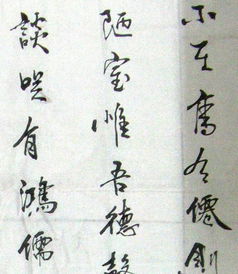 不在高有僊則
陋室惟吾德馨
談咲有鴻儒